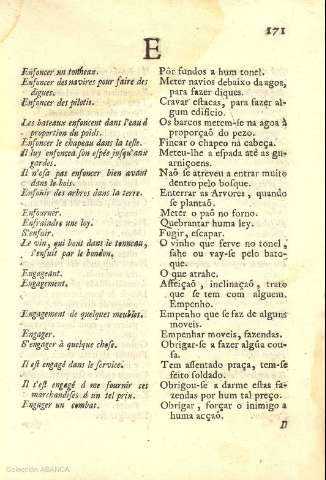 171
E
Enfoncer un tonneau.
Enfoncer des navires pour faire des
digues.
Enfoncer des pilotis.
Les bateaux enfoncent dans l'eau à
proportion du poids.
Enfoncer le chapeau dans la teste.
Il luy enfoncea son espée jusqu'aux
gardes.
Il n'osa pas enfoncer bien avant
dans le bois.
Enfouir des arbres dans la terre.
Enfourner.
Enfraindre une loy.
S'enfuir.
Le vin, qui bout dans le tonneau,
s'enfuit par le bondon.
Engageant.
Engagement.
Engagement de quelques meubles.
Engager.
S'engager à quelque chose.
Il est engagé dans le service.
Il s'est engagé à me fournir ces
marchandises à un tel prix.
Engager un combat.
Pôr fundos a hum tonel.
Meter navios debaixo da agoa,
para fazer diques.
Cravar estacas, para fazer al-
gum edificio.
Os barcos metem-se na agoa à
proporção do pezo.
Fincar o chapeo na cabeça.
Meteu-lhe a espada até as gu-
arniçoens.
Naõ se atreveu a entrar muito
dentro pelo bosque.
Enterrar as Arvores, quando
se plantaõ.
Meter o paõ no forno.
Quebrantar huma ley.
Fugir, escapar.
O vinho que ferve no tonel,
sahe ou vay-se pelo bato-
que.
O que atrahe.
Affeiçaõ, inclinaçaõ, trato
que se tem com alguem.
Empenho.
Empenho que se faz de alguns
moveis.
Empenhar moveis, fazendas.
Obrigar-se a fazer algũa cou-
sa.
Tem assentado praça, tem-se
feito soldado.
Obrigou-se a darme estas fa-
zendas por hum tal preço.
Obrigar, forçar o inimigo a
huma acçaõ.
Colección ABANCA